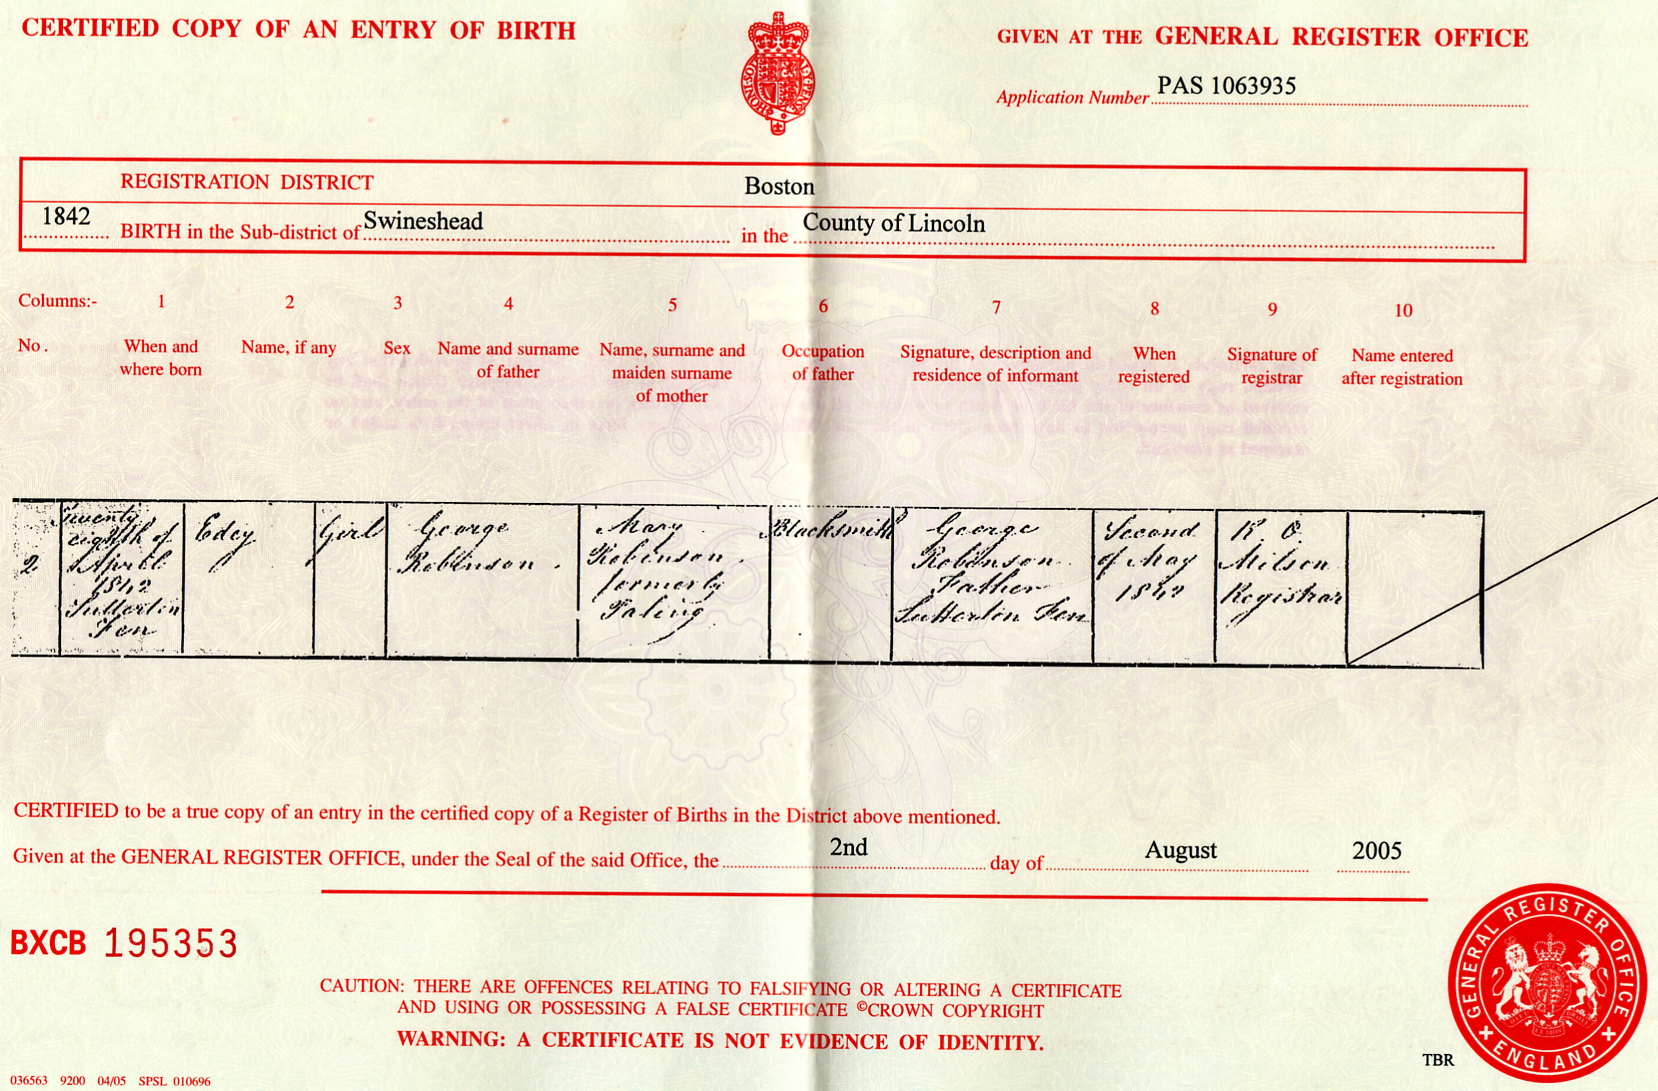 CERTIFIED COPY OF AN ENTRY OF BIRTH
GIVEN AT THE GENERAL REGISTER OFFICE
Application Number PAS 1063935
REGISTRATION DISTRICT Boston
1842 BIRTH in the Sub-district of Swineshead in the County of Lincoln
Columns:- 1 2 3 4 5 6 7 8 9 10
No. When and where born
Name, if any
Sex
Name and surname of father
Name, surname and maiden surname of mother
Occupation of father
Signature, description and residence of informant
When registered
Signature of registrar
Name entered after registration
2
Twenty
eighth of
April
1842
Sutterton
Fen
Edey
Girl
George
Robinson.
Mary
Robinson.
formerly
Taling
Blacksmith
George
Robinson
Father
Sutterton Fen
Second
of May
1842
R. O.
Milson
Registrar
CERTIFIED to be a true copy of an entry in the certified copy of a Register of Births in the District above mentioned.
Given at the GENERAL REGISTER OFFICE, under the Seal of the said Office, the 2nd day of August 2005
BXCB 195353
CAUTION: THERE ARE OFFENCES RELATING TO FALSIFYING OR ALTERING A CERTIFICATE
AND USING OR POSSESSING A FALSE CERTIFICATE ©CROWN COPYRIGHT
WARNING: A CERTIFICATE IS NOT EVIDENCE OF IDENTITY.
GENERAL REGISTER OFFICE
ENGLAND
TBR
036563 9200 04/05 SPSL 010696